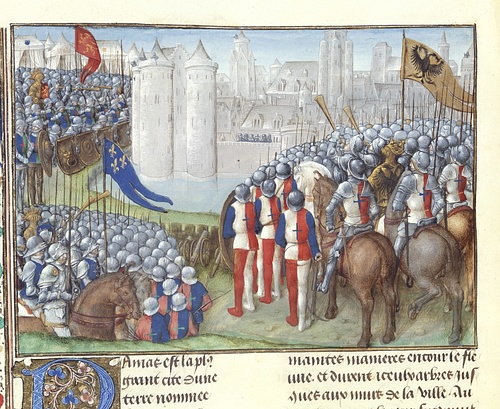 Damas est la pl9
grant cite dune
terre nommee
maintes manieres encour le fle
uue. et durent iceulx arbres ius
ques aux murs de la ville. Au